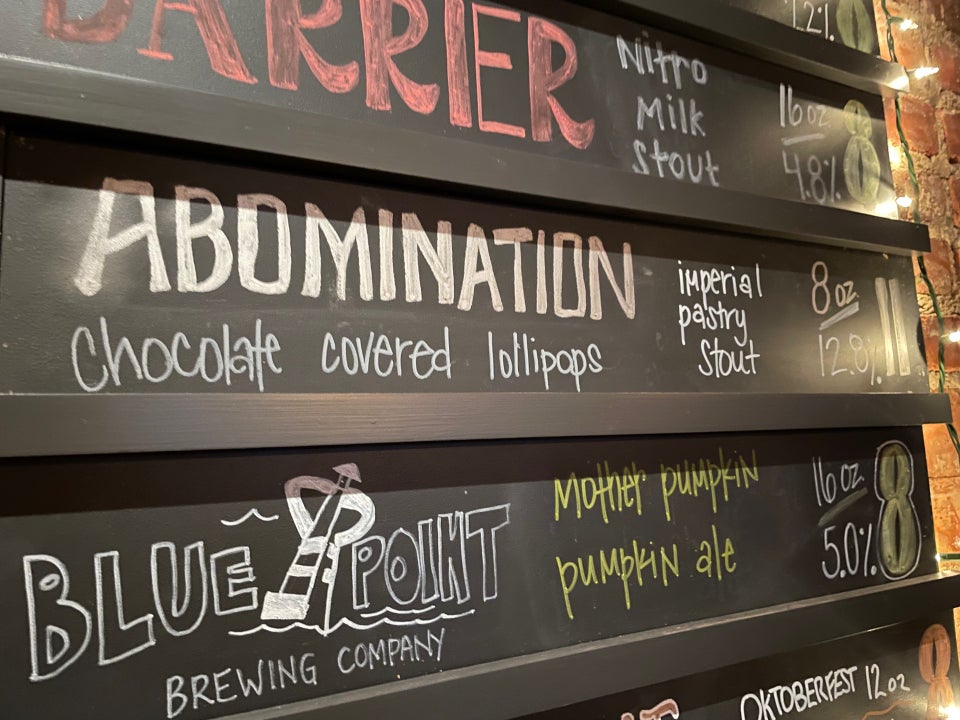 1.2%
BARRIER
Nitro
Milk
Stout
16 oz
4.8%
8
ABOMINATION
Chocolate covered lollipops
imperial
pastry
Stout
8 oz
12.8%
11
BLUE POINT
BREWING COMPANY
Mother pumpkin
pumpkin ale
16 oz
5.0%
8
OKTOBERFEST 12oz
8